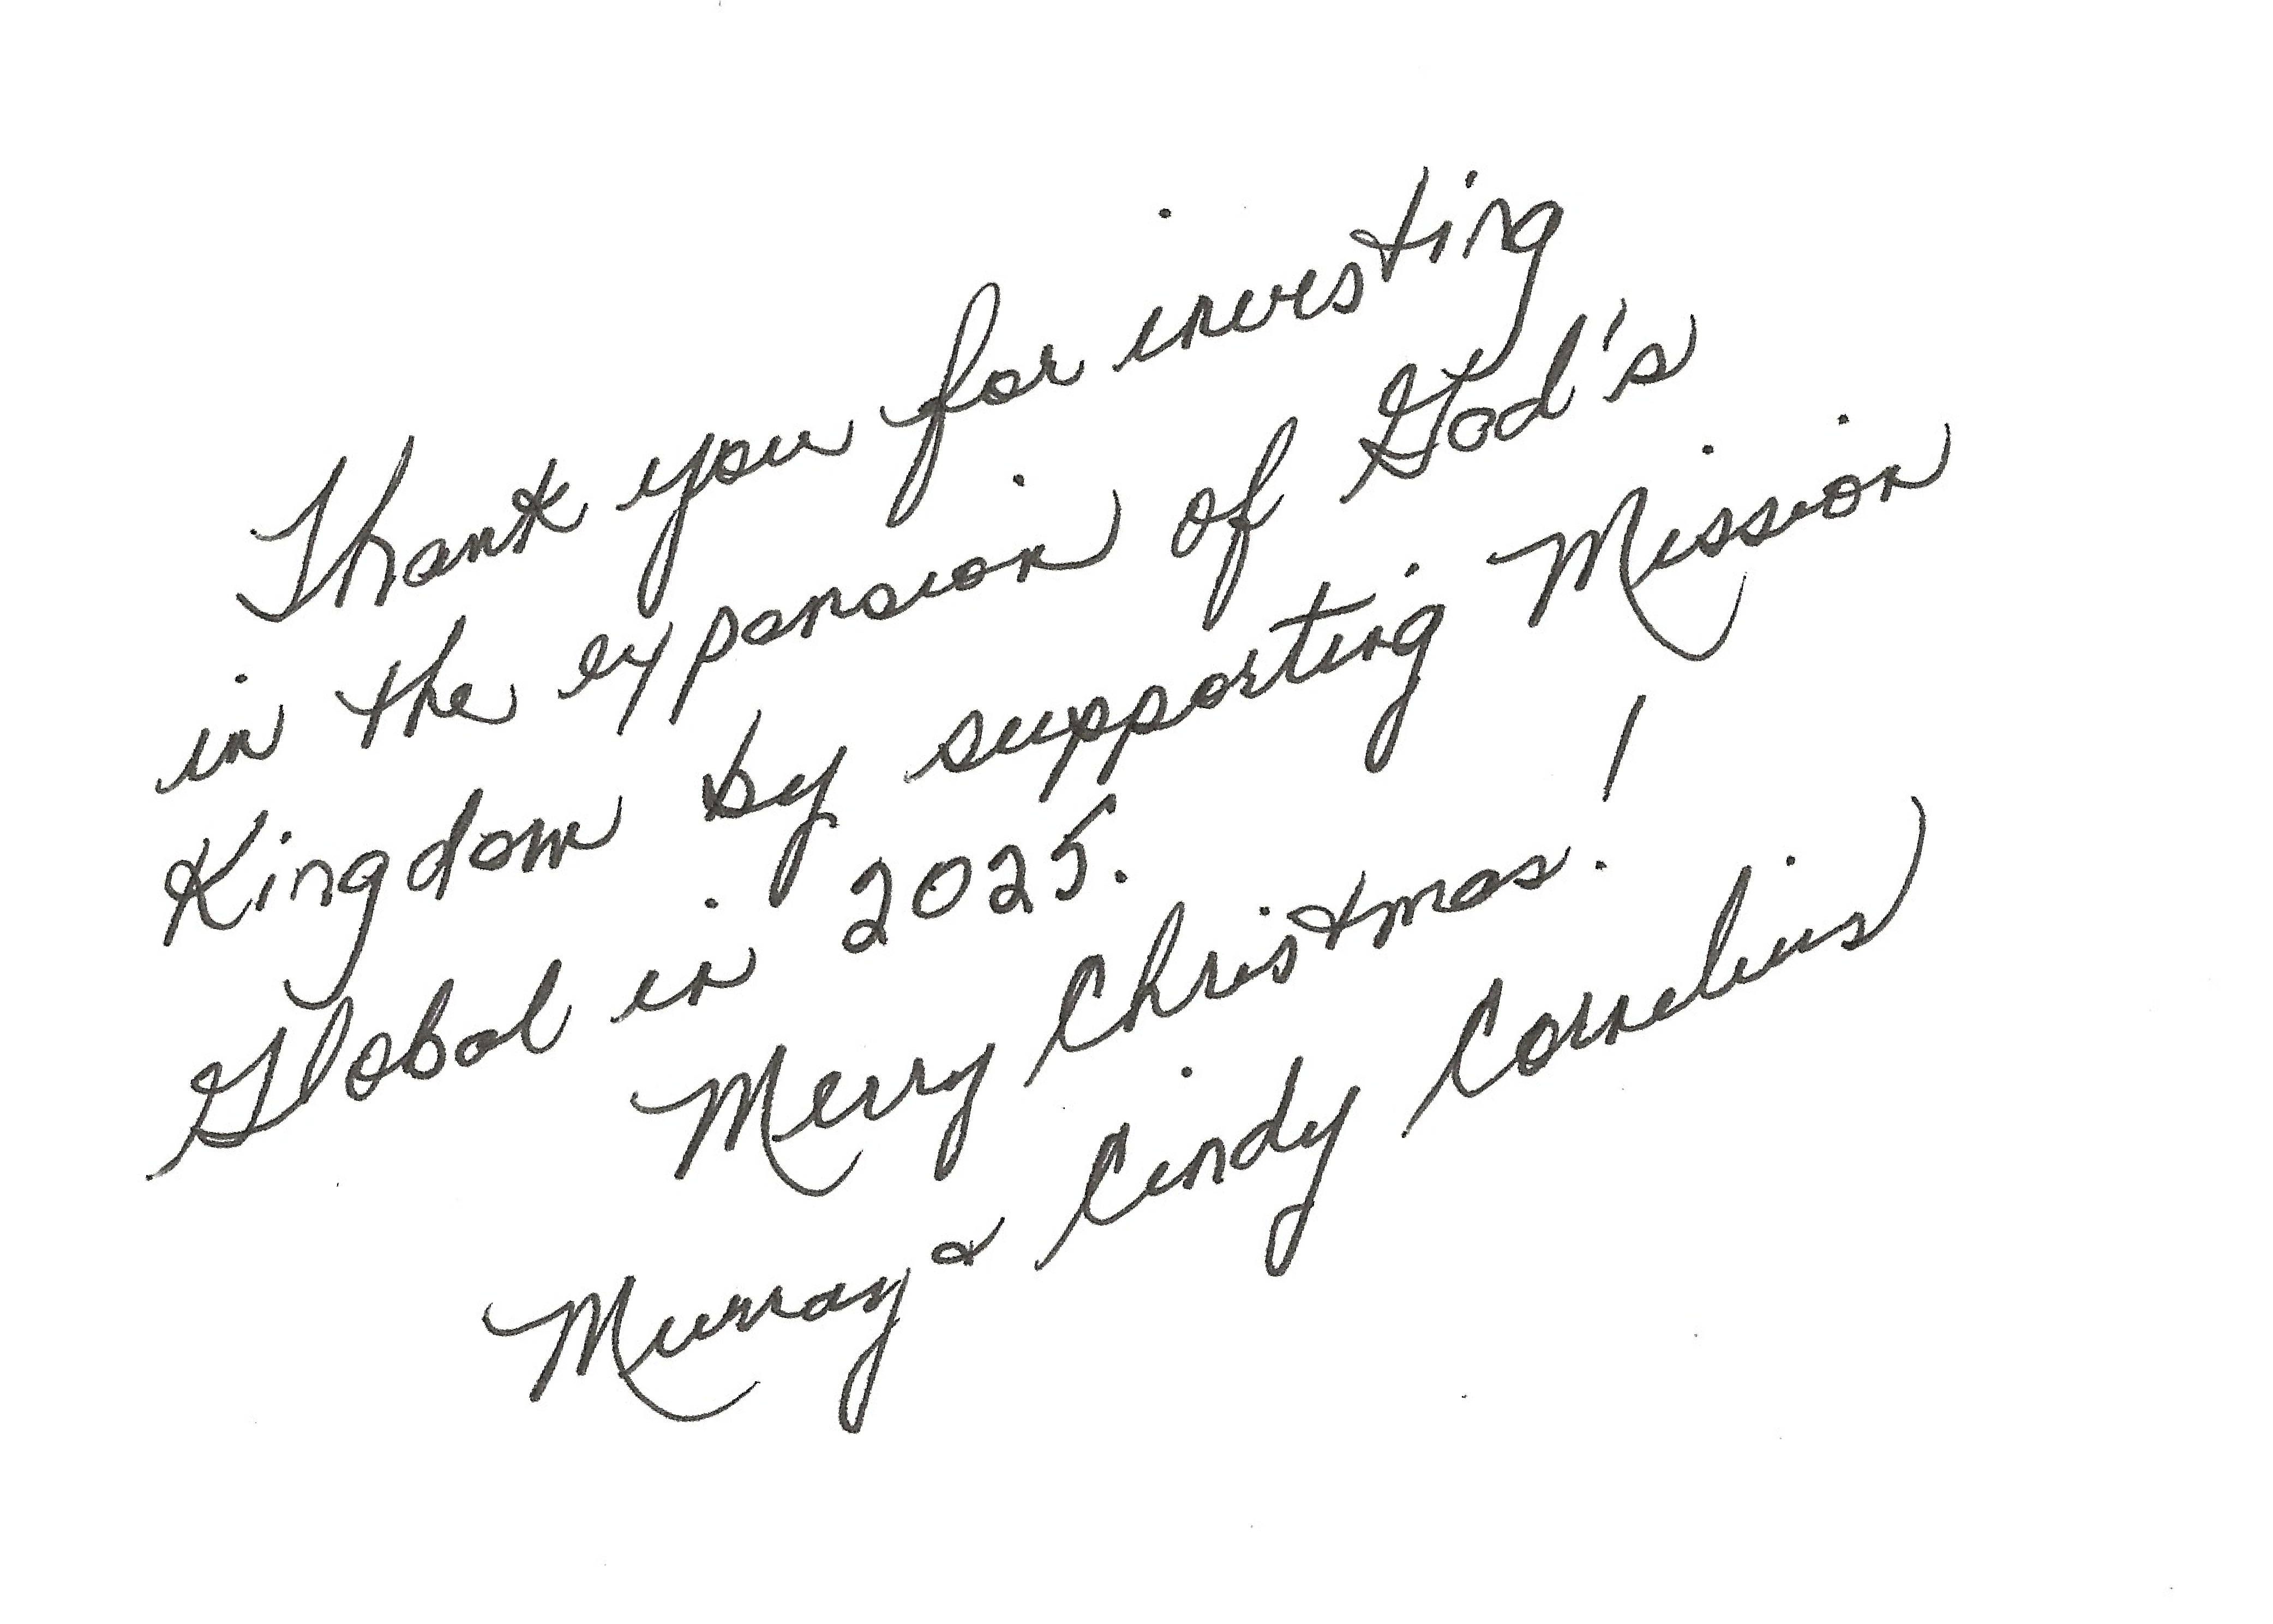 Thank you for investing
in the expansion of God's
Kingdom by supporting Mission
Global in 2025.
Merry Christmas!
Murray & Cindy Cornelius